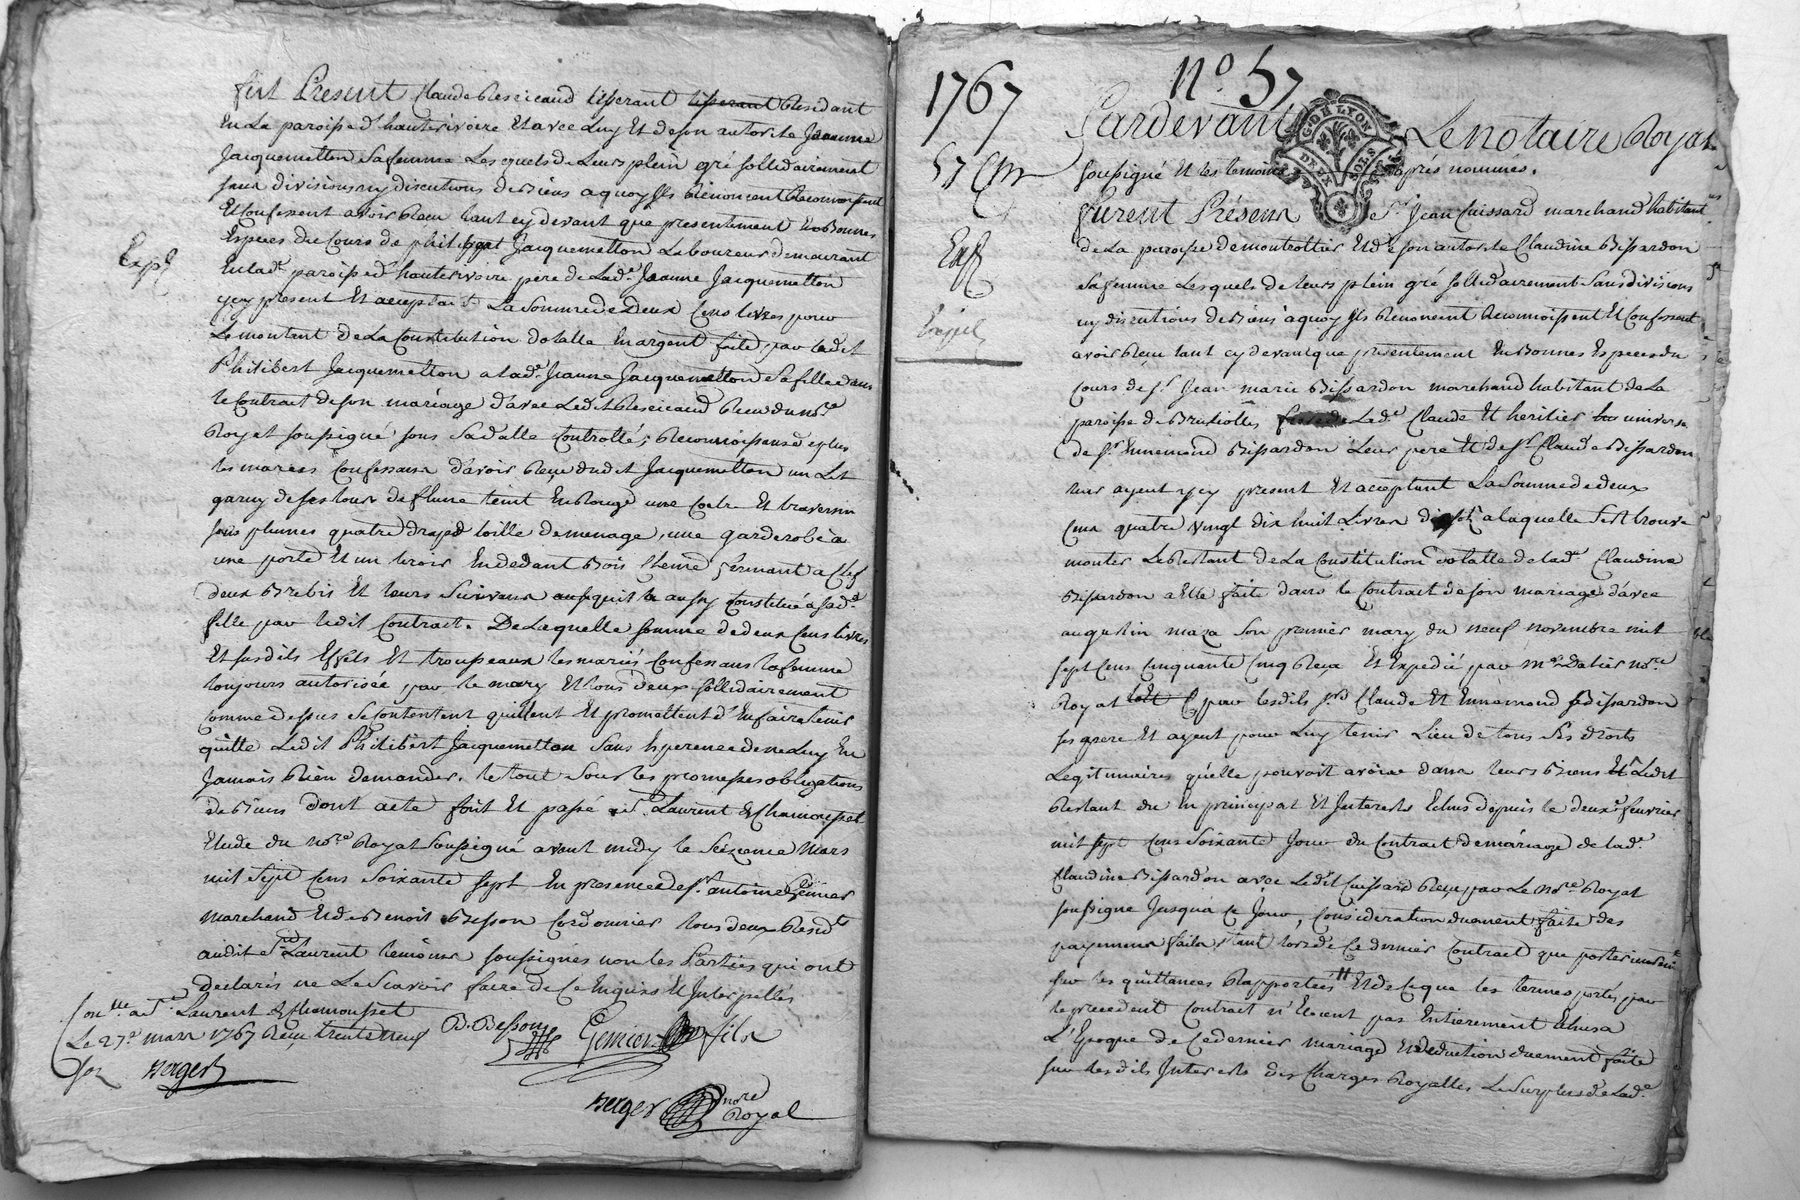 fut Present Claude Reseicaud tisserant tisserant Residant
En La paroisse d'hauterivoire Et avec Luy Et de son autorite Jeanne
Jacquemetton Sa femme Lesquels de Leurs plein gré sollidairement
sans divisions ny discutions de Biens a quoy Ils Rènoncent Reconnoissent
Et Confessent avoir Reçu tant cy devant que presentement En Bonnes
Especes du Cours de philippat Jacquemetton Laboureur demeurant
En lad.e paroisse d'hauterivoire pere de Lad.e Jeanne Jacquemetton
ycy present Et acceptant La Somme de Deux Cens livres pour
Le montant de La Constitution dotalle En argent faite par ledit
Philibert Jacquemetton a lad.e Jeanne Jacquemetton Sa fille dans
le Contrat de son mariage d'avec Ledit Reseicaud Reçu du no.re
Royal soussigné sous Sa datte Controllé, Reconnoissans de plus
les mariés Confessans d'avoir Reçu dudit Jacquemetton un Lit
garny de ses tour de flune teint En Rouge une Coetre Et traversin
sans plumes quatre draps toille de menage, une garderobe à
une porte Et un tiroir En dedant Bois Chene fermant a Clef
deux Brebis Et leurs Suivans ausquit la aussy Constitué a sad.e
fille par ledit Contrat. De Laquelle somme de deux Cens livres
Et susdits Effets Et troupeaux les mariés Confessans la femme
toujours autorisée par le mary Et tous deux sollidairement
comme dessus Se Contentent quittent Et promettent d'En faire tenir
quitte Ledit Philibert Jacquemetton Sans Esperence de ne Luy En
Jamais Rien demander. le tout Sous les promesses obligations
de Biens dont acte fait Et passé a S.t Laurent de Chamousset
Etude du no.re Royal Soussigné avant midy le Seizeme Mars
mil Sept Cens Soixante sept En presence de S.r antoine Genier
marchand Et de Benoit Besson Cordonnier tous deux Resid.ts
audit S.t Laurent temoins soussignés non les Parties qui ont
declarés ne Le Scavoir faire de Ce Enquis Et Interpellés
Expé
Con.lle a S.t Laurent de Chamousset
Le 27.e mars 1767 Reçu trente neuf
sols Berger
B. Besson Genier fils
Berger no.re
Royal
1767
n.o 57
Pardevant Le notaire Royal
G. DE LYON
DEUX SOLS
57
soussigné Et les temoins après nommés.
furent Présens le S.r Jean Cuissard marchand habitant
de La paroisse de montrottier Et de son autorité Claudine Bissardon
sa femme Lesquels de leurs plein gré sollidairement Sans divisions
ny discutions de Biens a quoy Ils Renoncent Reconnoissent Et Confessent
avoir Reçu tant cy devant que presentement En Bonnes Especes du
Cours de S.r Jean marie Bissardon marchand habitant de La
paroisse de Brussiolles frere de Lad.e Claude Et heritier universel
de S.r Ennemond Bissardon Leur pere Et de S.r Claude Bissardon
leur ayeut ycy present Et acceptant La Somme de deux
Cens quatre vingt dix huit Livres dix sols a laquelle s'est trouvé
monter Le Restant de La Constitution dotalle de lad.e Claudine
Bissardon a Elle faite dans le Contrat de son mariage d'avec
augustin maza son premier mary du neuf novembre mil
sept Cens Cinquante Cinq Reçu Et Expedié par m.e Dalier no.re
Royal par lesdits s.rs Claude Et Ennemond Bissardon
ses pere Et ayeut pour Luy tenir Lieu de tous Ses droits
Legitimaires qu'elle pouvoit avoir dans leurs Biens Ledit
Restant du En principal Et Interests Echus depuis le deux.e fevrier
mil sept Cens Soixante Jour du Contrat de mariage de lad.e
Claudine Bissardon avec Ledit Cuissard Reçu par Le no.re Royal
soussigne Jusqua Ce Jour, Consideration duement faite des
payemens faits tant lors de Ce dernier Contrat que posterieurement
sur les quittances Rapportées Et de Ce que les termes portés par
le precedent Contrat n'Etoient pas Entierement Echus a
L'Epoque de Ce dernier mariage Et deduction duement faite
sur lesdits Interests des Charges Royalles Le Surplus de Lad.e